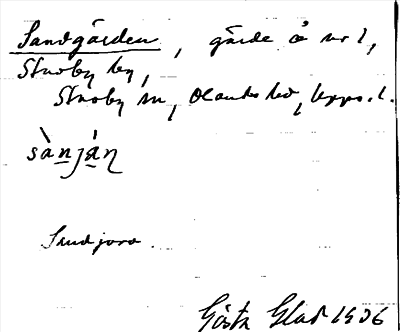 Sandgärden, gärde å nr 1,
Starby by,
Starby sn, Olands hd, Upps. l.
sànján
Sandjora.
Gösta Glad 1936